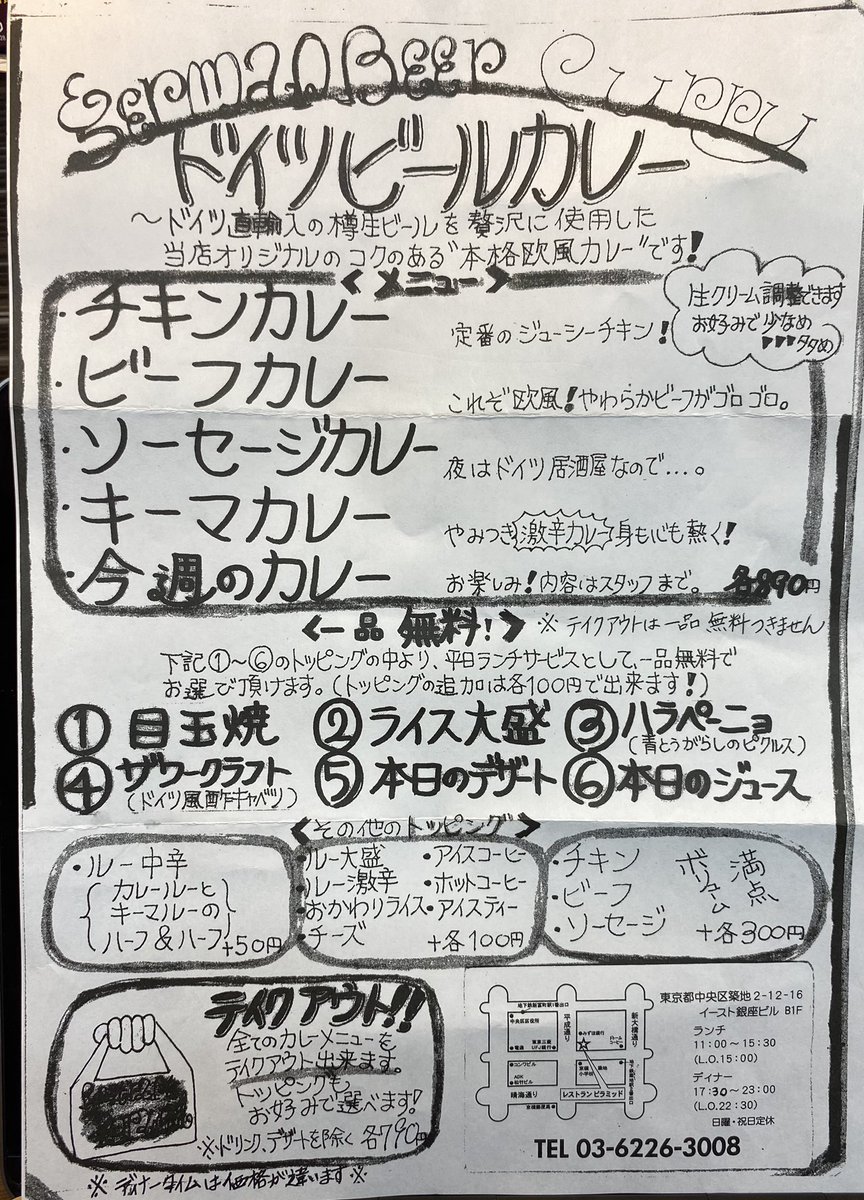 German Beer Curry
ドイツビールカレー
〜ドイツ直輸入の樽生ビールを贅沢に使用した
当店オリジナルのコクのある"本格欧風カレー"です!
<メニュー>
生クリーム調整できます
お好みで少なめ
多め
・チキンカレー 定番のジューシーチキン!
・ビーフカレー これぞ欧風!やわらかビーフがゴロゴロ。
・ソーセージカレー 夜はドイツ居酒屋なので…。
・キーマカレー やみつき激辛カレー身も心も熱く!
・今週のカレー お楽しみ!内容はスタッフまで。 各890円
<一品 無料!> ※テイクアウトは一品無料つきません
下記①〜⑥のトッピングの中より、平日ランチサービスとして、一品無料で
お選び頂けます。(トッピングの追加は各100円で出来ます!)
① 目玉焼 ② ライス大盛 ③ ハラペーニョ
(青とうがらしのピクルス)
④ ザワークラフト ⑤ 本日のデザート ⑥ 本日のジュース
(ドイツ風酢キャベツ)
<その他のトッピング>
・ルー中辛
{カレールーと
キーマルーの
ハーフ&ハーフ} +50円
・ルー大盛 ・アイスコーヒー
・ルー激辛 ・ホットコーヒー
・おかわりライス ・アイスティー
・チーズ +各100円
・チキン
・ビーフ
・ソーセージ
ボリューム満点
+各300円
テイクアウト!!
全てのカレーメニューを
テイクアウト出来ます。
トッピングも
お好みで選べます!
※ドリンク、デザートを除く 各790円
※ディナータイムは価格が違います※
地下鉄新富町駅1番出口
中央区区役所
平成通り
みずほ銀行
新大橋通り
電通
東京三菱
UFJ銀行
コンワビル
ADK
松竹ビル
京橋
小学校
築地
晴海通り
レストラン ピラミッド
京橋郵便局
東京都中央区築地2-12-16
イースト銀座ビル B1F
ランチ
11:00〜15:30
(L.O.15:00)
ディナー
17:30〜23:00
(L.O.22:30)
日曜・祝日定休
TEL 03-6226-3008